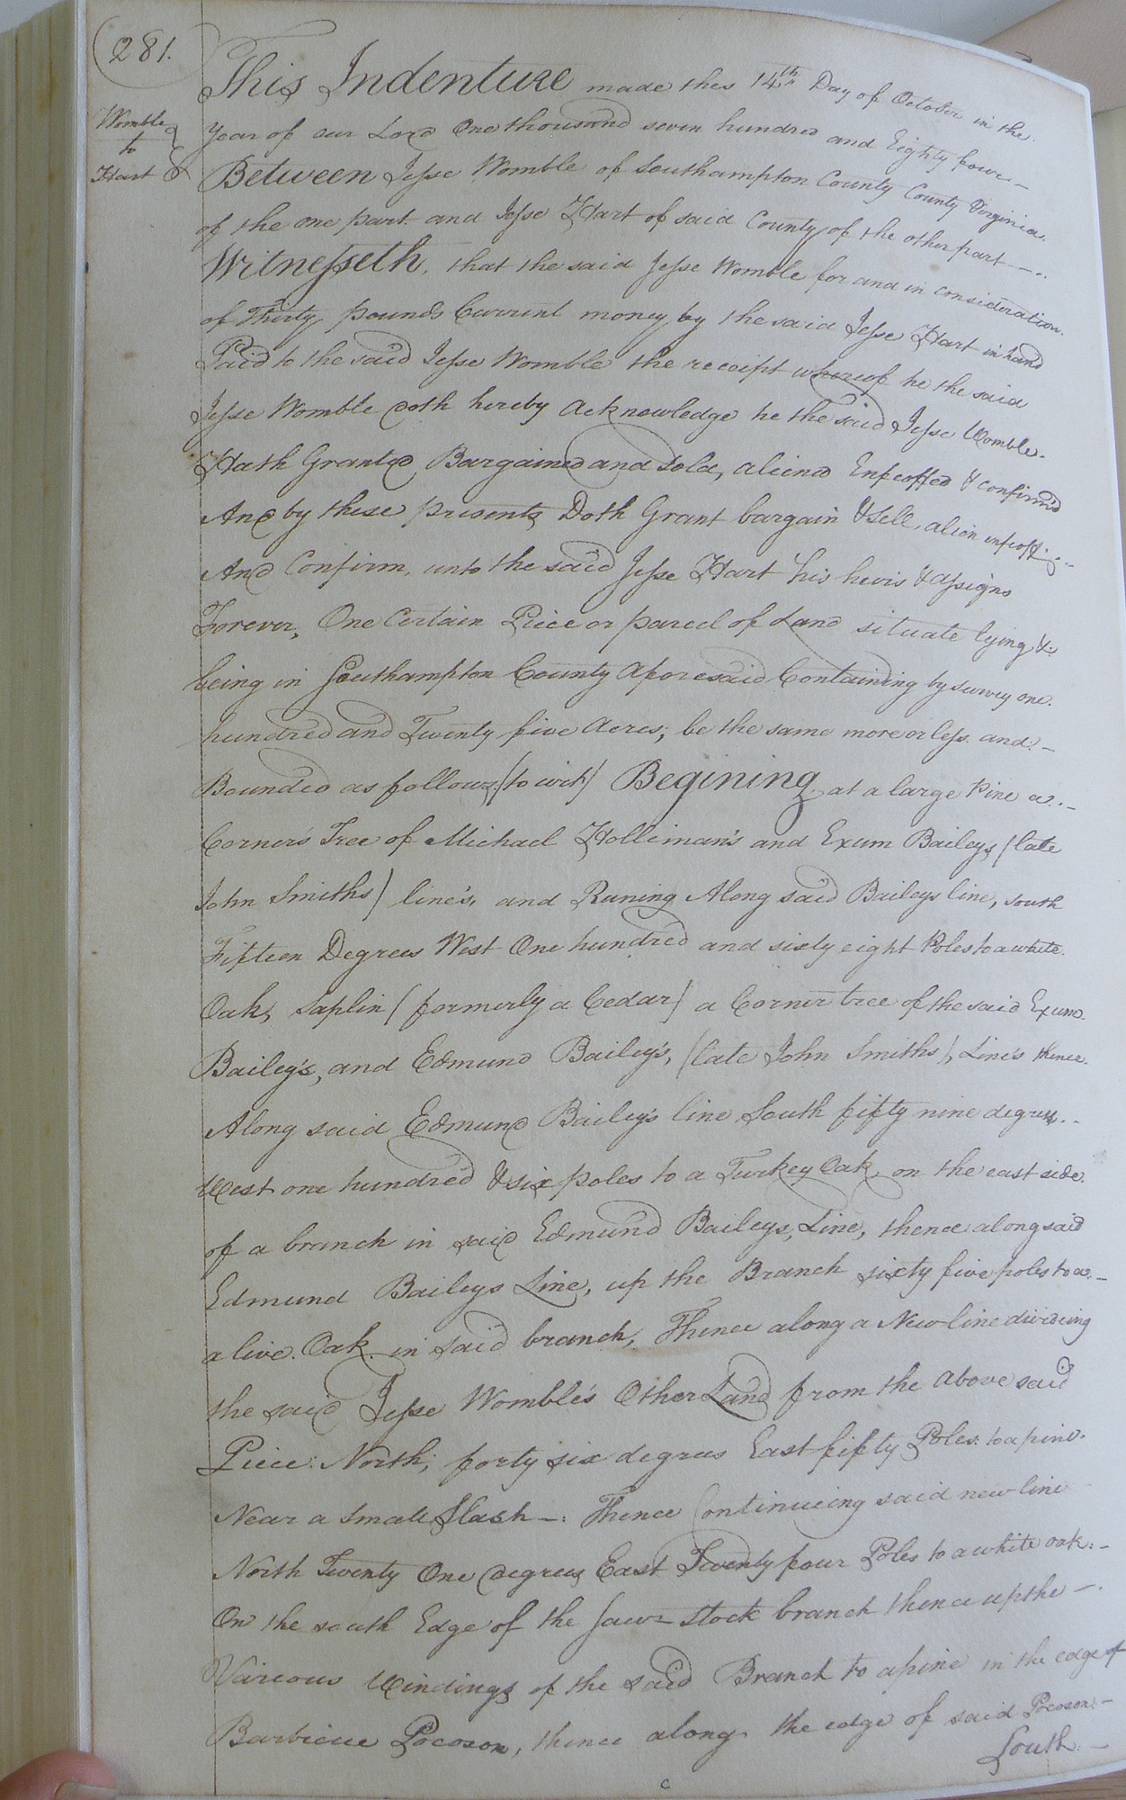 281.
Womble
to
Hart
This Indenture made thes 14th Day of October in the
Year of our Lord One thousand seven hundred and Eighty four -
Between Jesse Womble of Southampton County County Virginia.
of the one part and Jesse Hart of said County of the other part - - .
Witnesseth, that the said Jesse Womble for and in consideration.
of Thirty pounds Current money by the said Jesse Hart in hand
Paid to the said Jesse Womble the receipt whereof he the said
Jesse Womble doth hereby acknowledge he the said Jesse Womble.
Hath Granted Bargained and Sold, aliened Enfeoffed & confirmd
And by these presents Doth Grant bargain & Sell, alien enfeoff
And Confirm, unto the said Jesse Hart his heris & assigns
Forever, One Certain Piece or parcel of Land situate lying &
being in Southampton County Aforesaid Containing by survey one.
hundred and Twenty five Acres; be the same more or less. and. -
Bounded as follows (to wit) Begining at a large Pine a. -
Corners Tree of Michael Holliman's and Exum Baileys (late
John Smiths) line's, and Runing Along said Baileys line, south
Fifteen Degrees West One hundred and sixty eight Poles to a white.
Oak, Saplin (formerly a Cedar) a Corner tree of the said Exum.
Bailey's, and Edmund Bailey's, (late John Smiths), Line's thence.
Along said Edmund Bailey's line South fifty nine degrees. -
West one hundred & six poles to a Turkey Oak on the east side.
of a branch in said Edmund Baileys, Line, thence along said
Edmund Baileys Line, up the Branch sixty five poles to a. -
a live. Oak. in said branch, Thence along a New line dividing
the said Jesse Womble's Other Land from the above said
Piece: North; forty six degrees East fifty Poles to a pine.
Near a Small Slash - . Thence Continueing said new line
North Twenty One degrees East Twenty four Poles to a white oak. -
On the south Edge of the Saw - Stock branch thence up the - .
Various Windings of the said Branch to a pine in the edge of
Barbicue Pocoson, thence along the edge of said Pocoson. -
South -